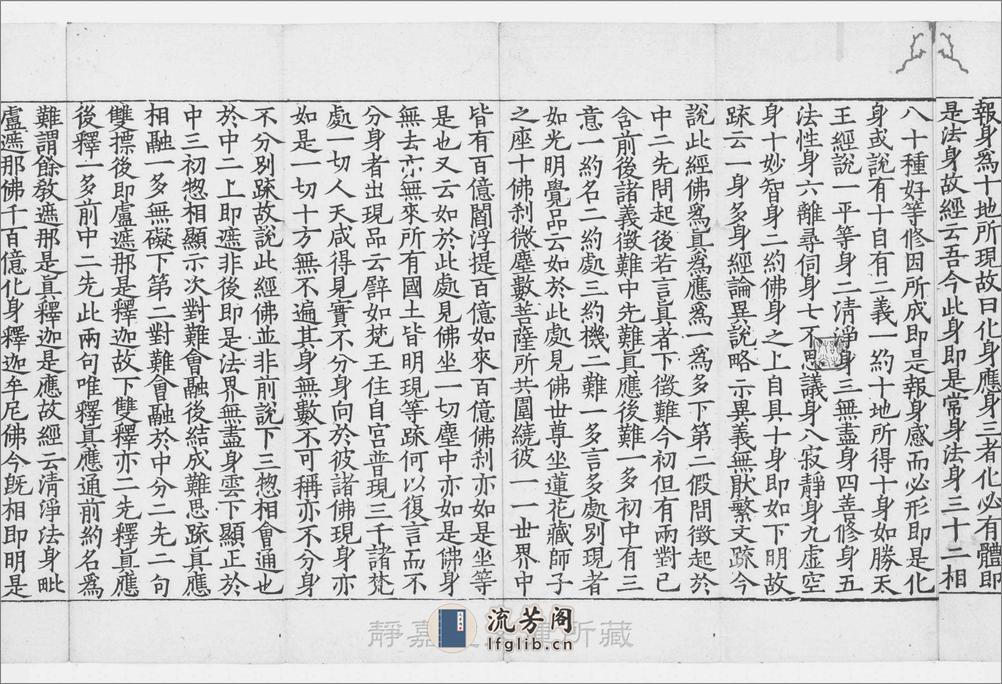 報身為十地所現故曰化身應身三者化必有體即
是法身故經云吾今此身即是常身法身三十二相
八十種好等修因所成即是報身感而必形即是化
身或說有十自有二義一約十地所得十身如勝天
王經說一平等身二清淨身三無盡身四善修身五
法性身六離尋伺身七不思議身八寂靜身九虛空
身十妙智身二約佛身之上自具十身即如下明故
䟽云一身多身經論異說略示異義無猒繁文䟽今
說此經佛為真為應為一為多下第二假問徵起於
中二先問起後若言真者下徵難今初但有兩對已
含前後諸義徵難中先難真應後難一多初中有三
意一約名二約處三約機二難一多言多處別現者
如光明覺品云如於此處見佛世尊坐蓮花藏師子
之座十佛剎微塵數菩薩所共圍繞彼一一世界中
皆有百億閻浮提百億如來百億佛剎亦如是坐等
是也又云如於此處見佛坐一切塵中亦如是佛身
無去亦無來所有國土皆明現等䟽何以復言而不
分身者出現品云譬如梵王住自宮普現三千諸梵
處一切人天咸得見實不分身向於彼諸佛現身亦
如是一切十方無不遍其身無數不可稱亦不分身
不分別䟽故說此經佛並非前說下三惣相會通也
於中二上即遮非後即是法界無盡身雲下顯正於
中三初惣相顯示次對難會融後結成難思䟽真應
相融一多無礙下第二對難會融於中分二先二句
雙摽後即盧遮那是釋迦故下雙釋亦二先釋真應
後釋一多前中二先此兩句唯釋真應通前約名為
難謂餘教遮那是真釋迦是應故經云清淨法身毗
盧遮那佛千百億化身釋迦牟尼佛今既相即明是
靜嘉
所藏
流芳阁
lfglib.cn